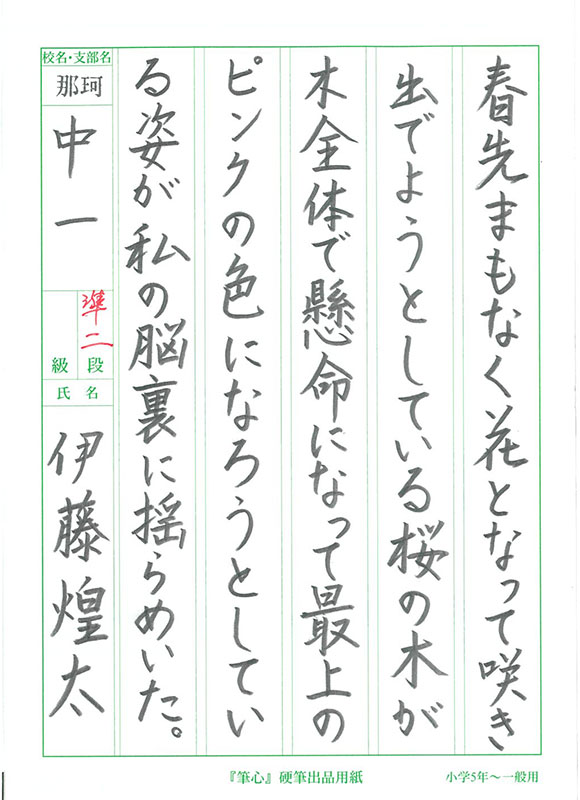 春先まもなく花となって咲き
出でようとしている桜の木が
木全体で懸命になって最上の
ピンクの色になろうとしてい
る姿が私の脳裏に揺らめいた。
校名・支部名
那珂
中一
準二
段
級
氏名
伊藤煌太
『筆心』硬筆出品用紙
小学5年〜一般用